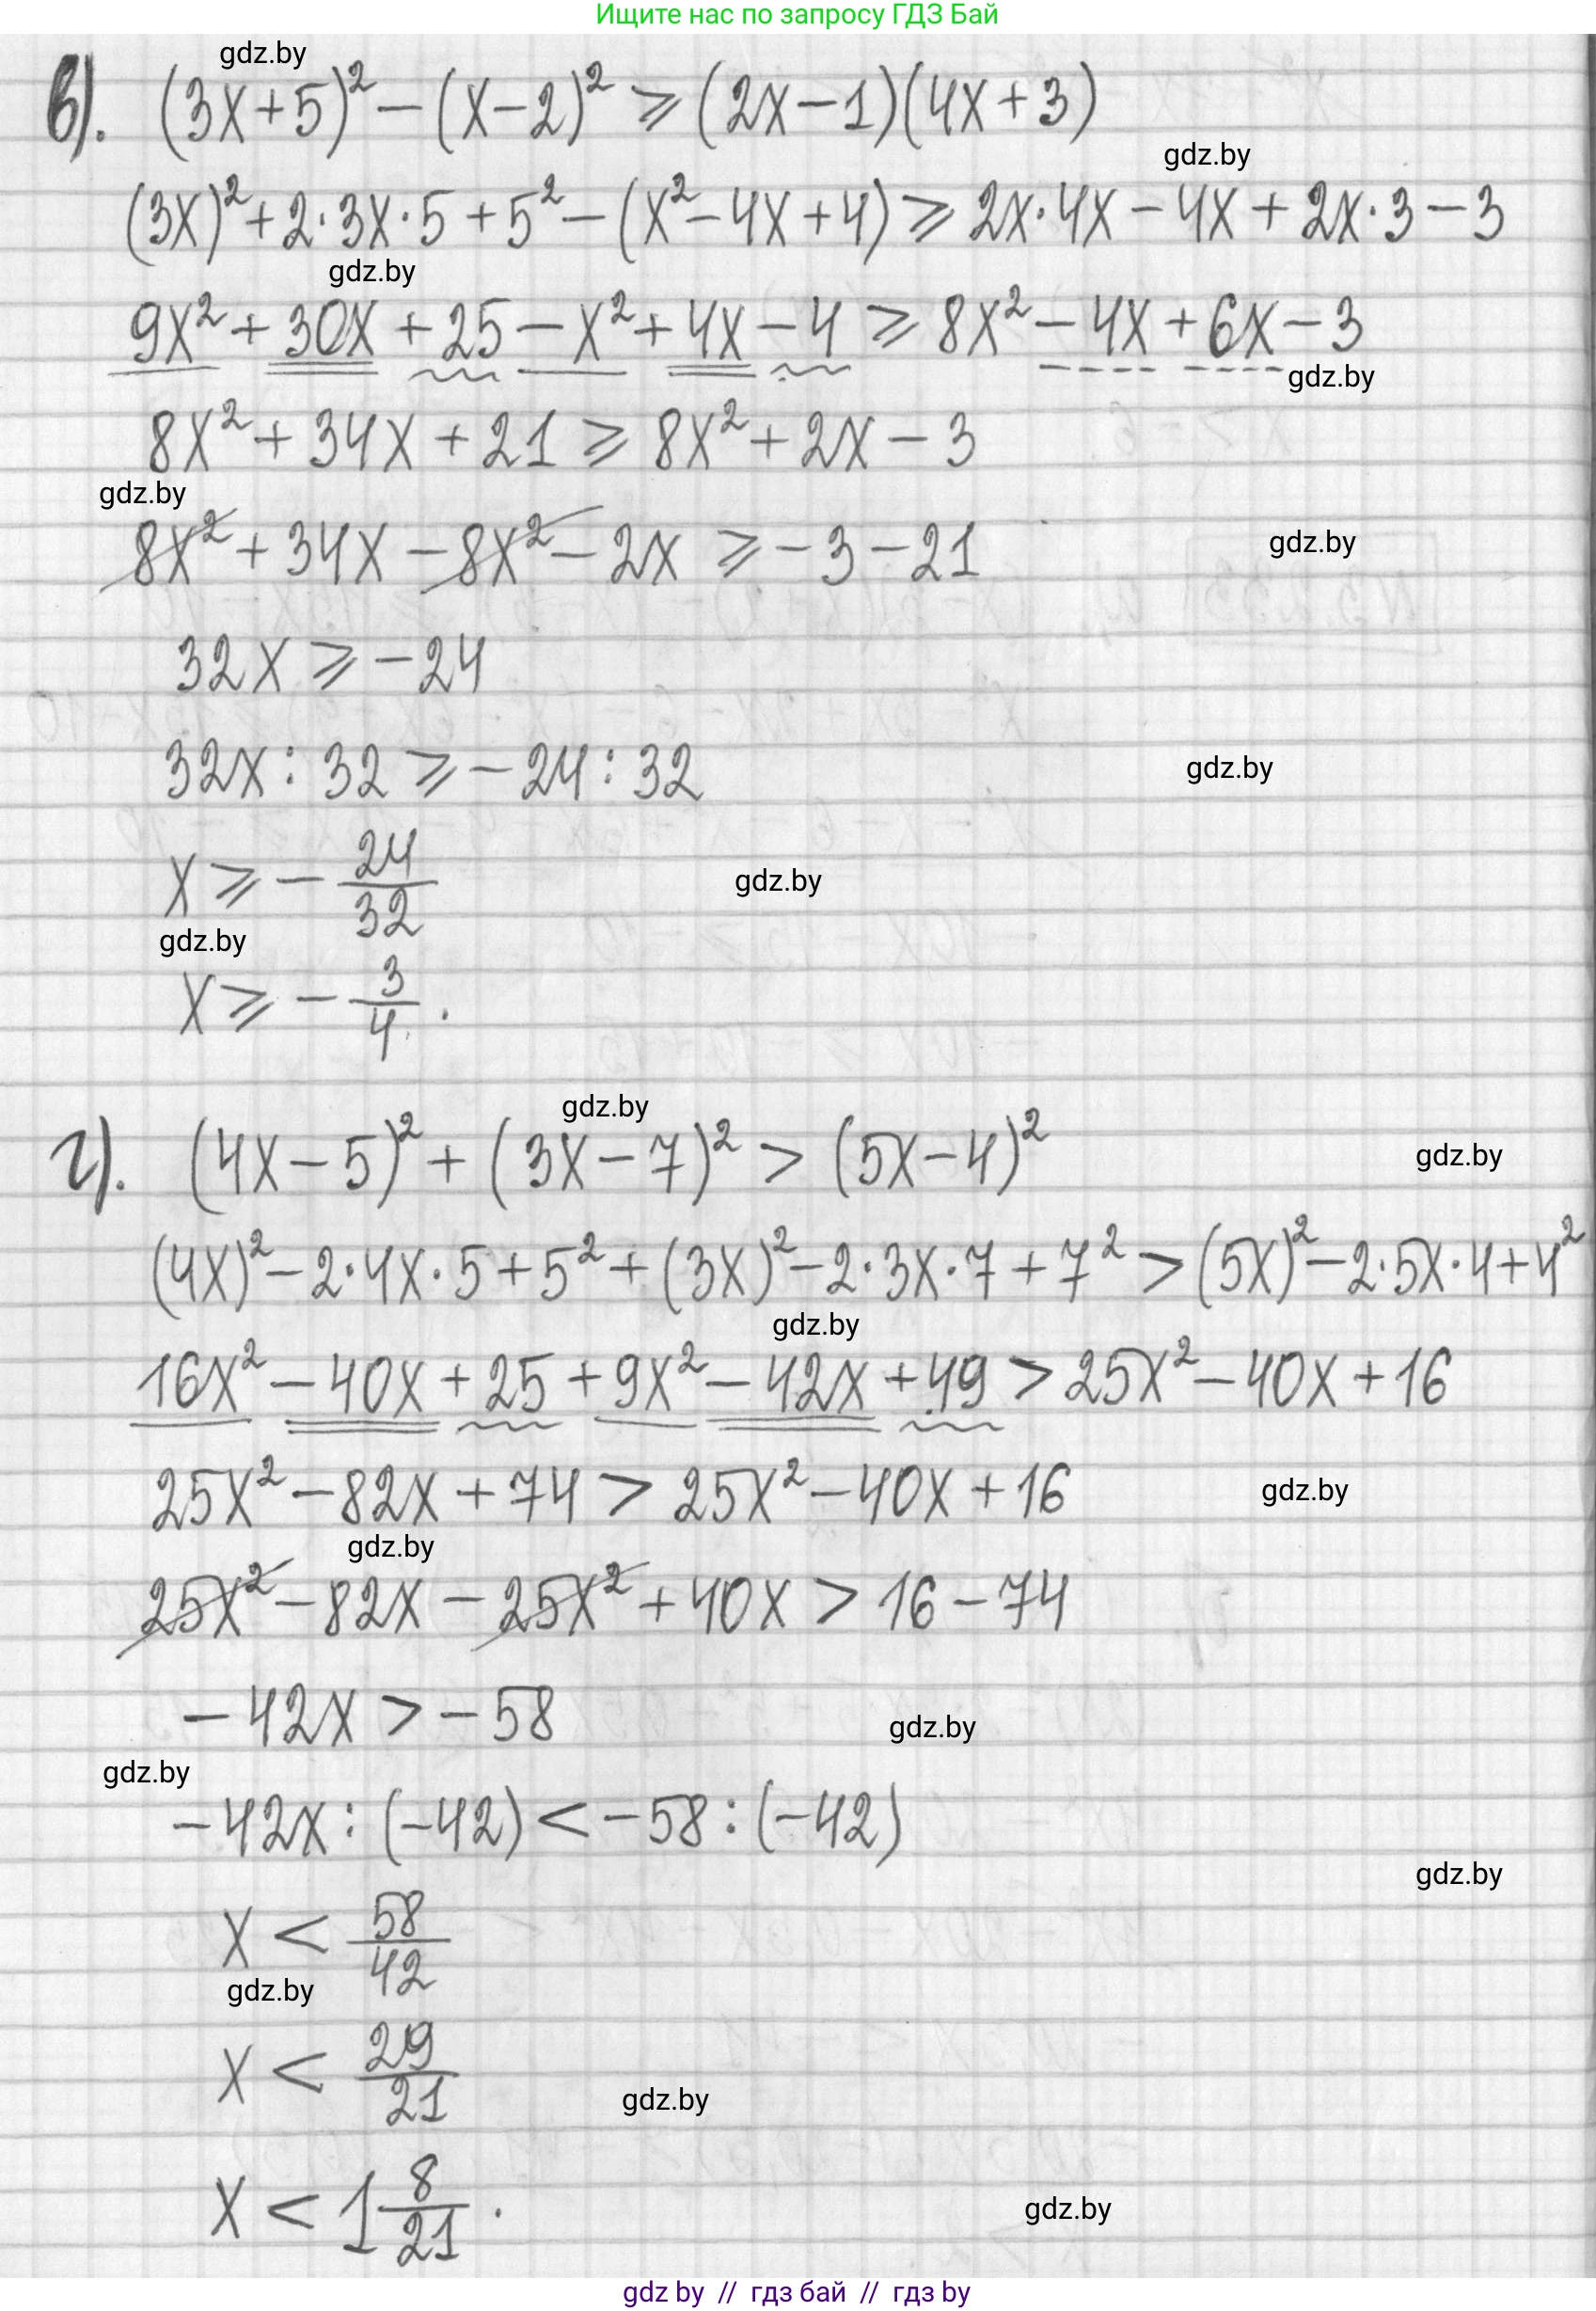 Ищите нас по запросу ГДЗ Бай
gdz.by
в). (3x+5)² − (x−2)² ⩾ (2x−1)(4x+3)
gdz.by
(3x)² + 2·3x·5 + 5² − (x² − 4x + 4) ⩾ 2x·4x − 4x + 2x·3 − 3
gdz.by
9x² + 30x + 25 − x² + 4x − 4 ⩾ 8x² − 4x + 6x − 3
gdz.by
8x² + 34x + 21 ⩾ 8x² + 2x − 3
gdz.by
8x² + 34x − 8x² − 2x ⩾ −3 − 21
gdz.by
32x ⩾ −24
32x : 32 ⩾ −24 : 32
gdz.by
x ⩾ −24/32
gdz.by
gdz.by
x ⩾ −3/4.
gdz.by
г). (4x−5)² + (3x−7)² > (5x−4)²
gdz.by
(4x)² − 2·4x·5 + 5² + (3x)² − 2·3x·7 + 7² > (5x)² − 2·5x·4 + 4²
gdz.by
16x² − 40x + 25 + 9x² − 42x + 49 > 25x² − 40x + 16
25x² − 82x + 74 > 25x² − 40x + 16
gdz.by
gdz.by
25x² − 82x − 25x² + 40x > 16 − 74
−42x > −58
gdz.by
gdz.by
−42x : (−42) < −58 : (−42)
gdz.by
x < 58/42
gdz.by
x < 29/21
gdz.by
x < 1 8/21.
gdz.by
gdz by // гдз бай // гдз by